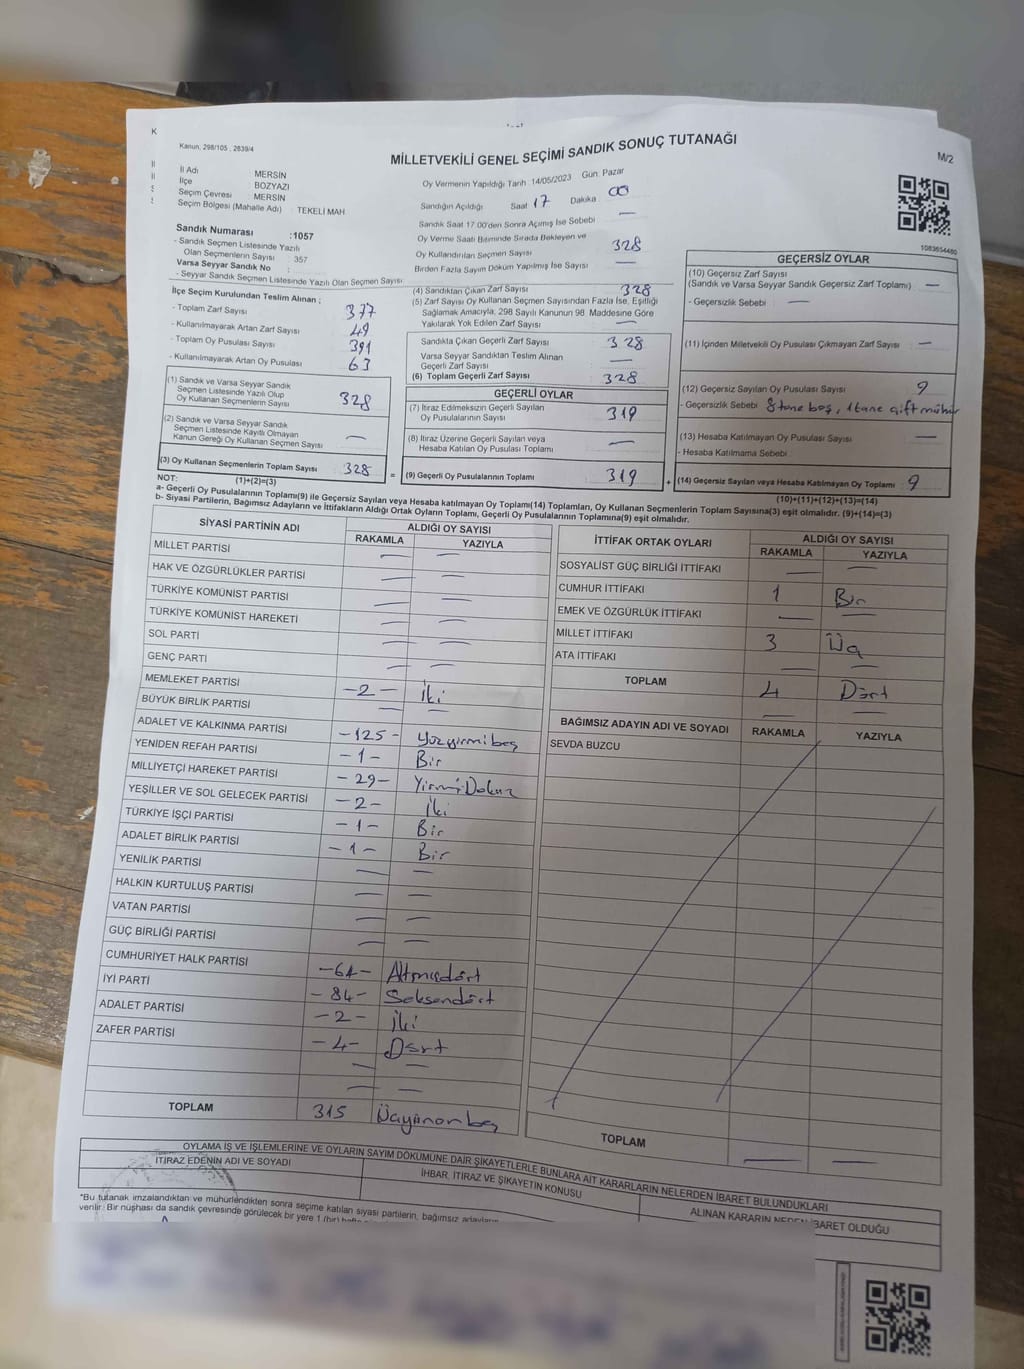 Kanun, 298/105 , 2839/4
MİLLETVEKİLİ GENEL SEÇİMİ SANDIK SONUÇ TUTANAĞI
M/2
İl Adı MERSİN
İlçe BOZYAZI
Seçim Çevresi MERSİN
Seçim Bölgesi (Mahalle Adı) : TEKELİ MAH
Sandık Numarası :1057
- Sandık Seçmen Listesinde Yazılı
Olan Seçmenlerin Sayısı : 357
Varsa Seyyar Sandık No :
- Seyyar Sandık Seçmen Listesinde Yazılı Olan Seçmen Sayısı
İlçe Seçim Kurulundan Teslim Alınan ;
- Toplam Zarf Sayısı 377
- Kullanılmayarak Artan Zarf Sayısı 49
- Toplam Oy Pusulası Sayısı 391
- Kullanılmayarak Artan Oy Pusulası 63
(1) Sandık ve Varsa Seyyar Sandık
Seçmen Listesinde Yazılı Olup
Oy Kullanan Seçmenlerin Sayısı 328
(2) Sandık ve Varsa Seyyar Sandık
Seçmen Listesinde Kayıtlı Olmayan
Kanun Gereği Oy Kullanan Seçmen Sayısı —
(3) Oy Kullanan Seçmenlerin Toplam Sayısı 328 =
(1)+(2)=(3)
Oy Vermenin Yapıldığı Tarih :14/05/2023 Gün: Pazar
Sandığın Açıldığı Saat 17 Dakika 00
Sandık Saat 17.00'den Sonra Açılmış İse Sebebi —
Oy Verme Saati Bitiminde Sırada Bekleyen ve
Oy Kullandırılan Seçmen Sayısı 328
Birden Fazla Sayım Döküm Yapılmış İse Sayısı —
(4) Sandıktan Çıkan Zarf Sayısı 328
(5) Zarf Sayısı Oy Kullanan Seçmen Sayısından Fazla İse, Eşitliği
Sağlamak Amacıyla, 298 Sayılı Kanunun 98. Maddesine Göre
Yakılarak Yok Edilen Zarf Sayısı —
Sandıkta Çıkan Geçerli Zarf Sayısı 328
Varsa Seyyar Sandıktan Teslim Alınan
Geçerli Zarf Sayısı —
(6) Toplam Geçerli Zarf Sayısı 328
GEÇERLİ OYLAR
(7) İtiraz Edilmeksizin Geçerli Sayılan
Oy Pusulalarının Sayısı 319
(8) İtiraz Üzerine Geçerli Sayılan veya
Hesaba Katılan Oy Pusulası Toplamı —
(9) Geçerli Oy Pusulalarının Toplamı 319 +
1083654480
GEÇERSİZ OYLAR
(10) Geçersiz Zarf Sayısı
(Sandık ve Varsa Seyyar Sandık Geçersiz Zarf Toplamı) —
- Geçersizlik Sebebi : —
(11) İçinden Milletvekili Oy Pusulası Çıkmayan Zarf Sayısı —
(12) Geçersiz Sayılan Oy Pusulası Sayısı 9
- Geçersizlik Sebebi : 8 tane boş, 1 tane çift mühür
(13) Hesaba Katılmayan Oy Pusulası Sayısı —
- Hesaba Katılmama Sebebi :
(14) Geçersiz Sayılan veya Hesaba Katılmayan Oy Toplamı 9
(10)+(11)+(12)+(13)=(14)
NOT:
a- Geçerli Oy Pusulalarının Toplamı(9) ile Geçersiz Sayılan veya Hesaba katılmayan Oy Toplamı(14) Toplamları, Oy Kullanan Seçmenlerin Toplam Sayısına(3) eşit olmalıdır. (9)+(14)=(3)
b- Siyasi Partilerin, Bağımsız Adayların ve İttifakların Aldığı Ortak Oyların Toplamı, Geçerli Oy Pusulalarının Toplamına(9) eşit olmalıdır.
SİYASİ PARTİNİN ADI ALDIĞI OY SAYISI
RAKAMLA YAZIYLA
MİLLET PARTİSİ — —
HAK VE ÖZGÜRLÜKLER PARTİSİ — —
TÜRKİYE KOMÜNİST PARTİSİ — —
TÜRKİYE KOMÜNİST HAREKETİ — —
SOL PARTİ — —
GENÇ PARTİ — —
MEMLEKET PARTİSİ -2- İki
BÜYÜK BİRLİK PARTİSİ — —
ADALET VE KALKINMA PARTİSİ -125- Yüzyirmibeş
YENİDEN REFAH PARTİSİ -1- Bir
MİLLİYETÇİ HAREKET PARTİSİ -29- YirmiDokuz
YEŞİLLER VE SOL GELECEK PARTİSİ -2- İki
TÜRKİYE İŞÇİ PARTİSİ -1- Bir
ADALET BİRLİK PARTİSİ -1- Bir
YENİLİK PARTİSİ — —
HALKIN KURTULUŞ PARTİSİ — —
VATAN PARTİSİ — —
GÜÇ BİRLİĞİ PARTİSİ — —
CUMHURİYET HALK PARTİSİ -64- Altmışdört
İYİ PARTİ -84- Seksendört
ADALET PARTİSİ -2- İki
ZAFER PARTİSİ -4- Dört
— —
— —
TOPLAM 315 Üçyüzonbeş
İTTİFAK ORTAK OYLARI ALDIĞI OY SAYISI
RAKAMLA YAZIYLA
SOSYALİST GÜÇ BİRLİĞİ İTTİFAKI — —
CUMHUR İTTİFAKI 1 Bir
EMEK VE ÖZGÜRLÜK İTTİFAKI — —
MİLLET İTTİFAKI 3 Üç
ATA İTTİFAKI — —
TOPLAM 4 Dört
— —
BAĞIMSIZ ADAYIN ADI VE SOYADI RAKAMLA YAZIYLA
SEVDA BUZCU
TOPLAM — —
OYLAMA İŞ VE İŞLEMLERİNE VE OYLARIN SAYIM DÖKÜMÜNE DAİR ŞİKAYETLERLE BUNLARA AİT KARARLARIN NELERDEN İBARET BULUNDUKLARI
İTİRAZ EDENİN ADI VE SOYADI
İHBAR, İTİRAZ VE ŞİKAYETİN KONUSU
ALINAN KARARIN NEDEN İBARET OLDUĞU
*Bu tutanak imzalandıktan ve mühürlendikten sonra seçime katılan siyasi partilerin, bağımsız adayların
verilir. Bir nüshası da sandık çevresinde görülecek bir yere 1 (bir) hafta